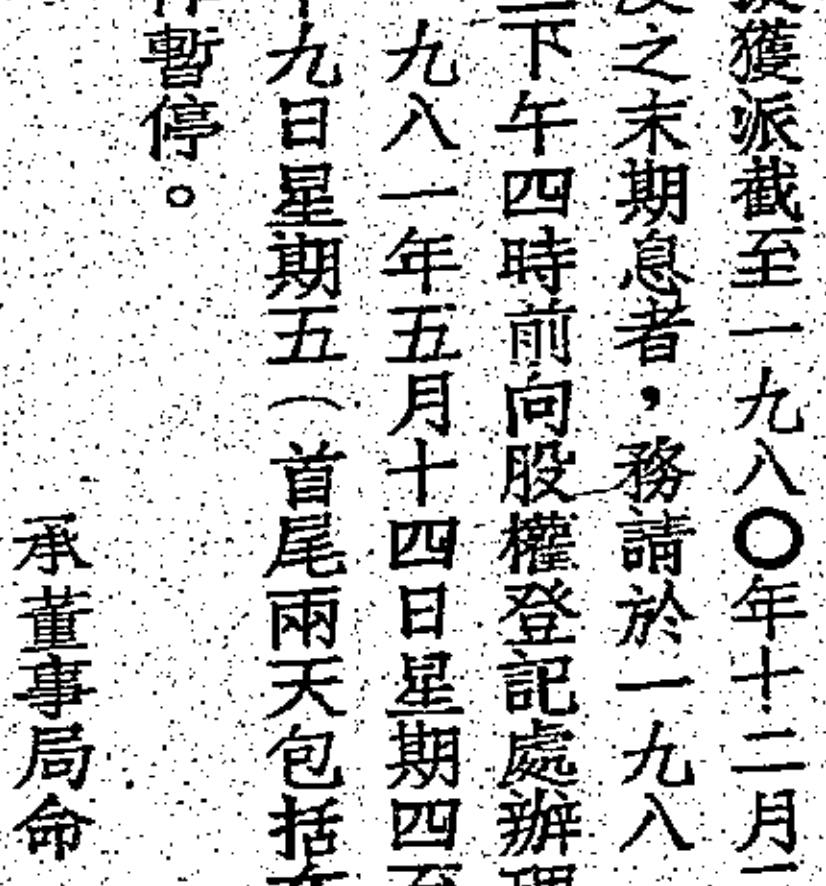 獲派截至一九八〇年十二月
之末期息者，務請於一九八
下午四時前向股權登記處辦理
九八一年五月十四日星期四至
九日星期五（首尾兩天包括在
暫停。
承董事局命